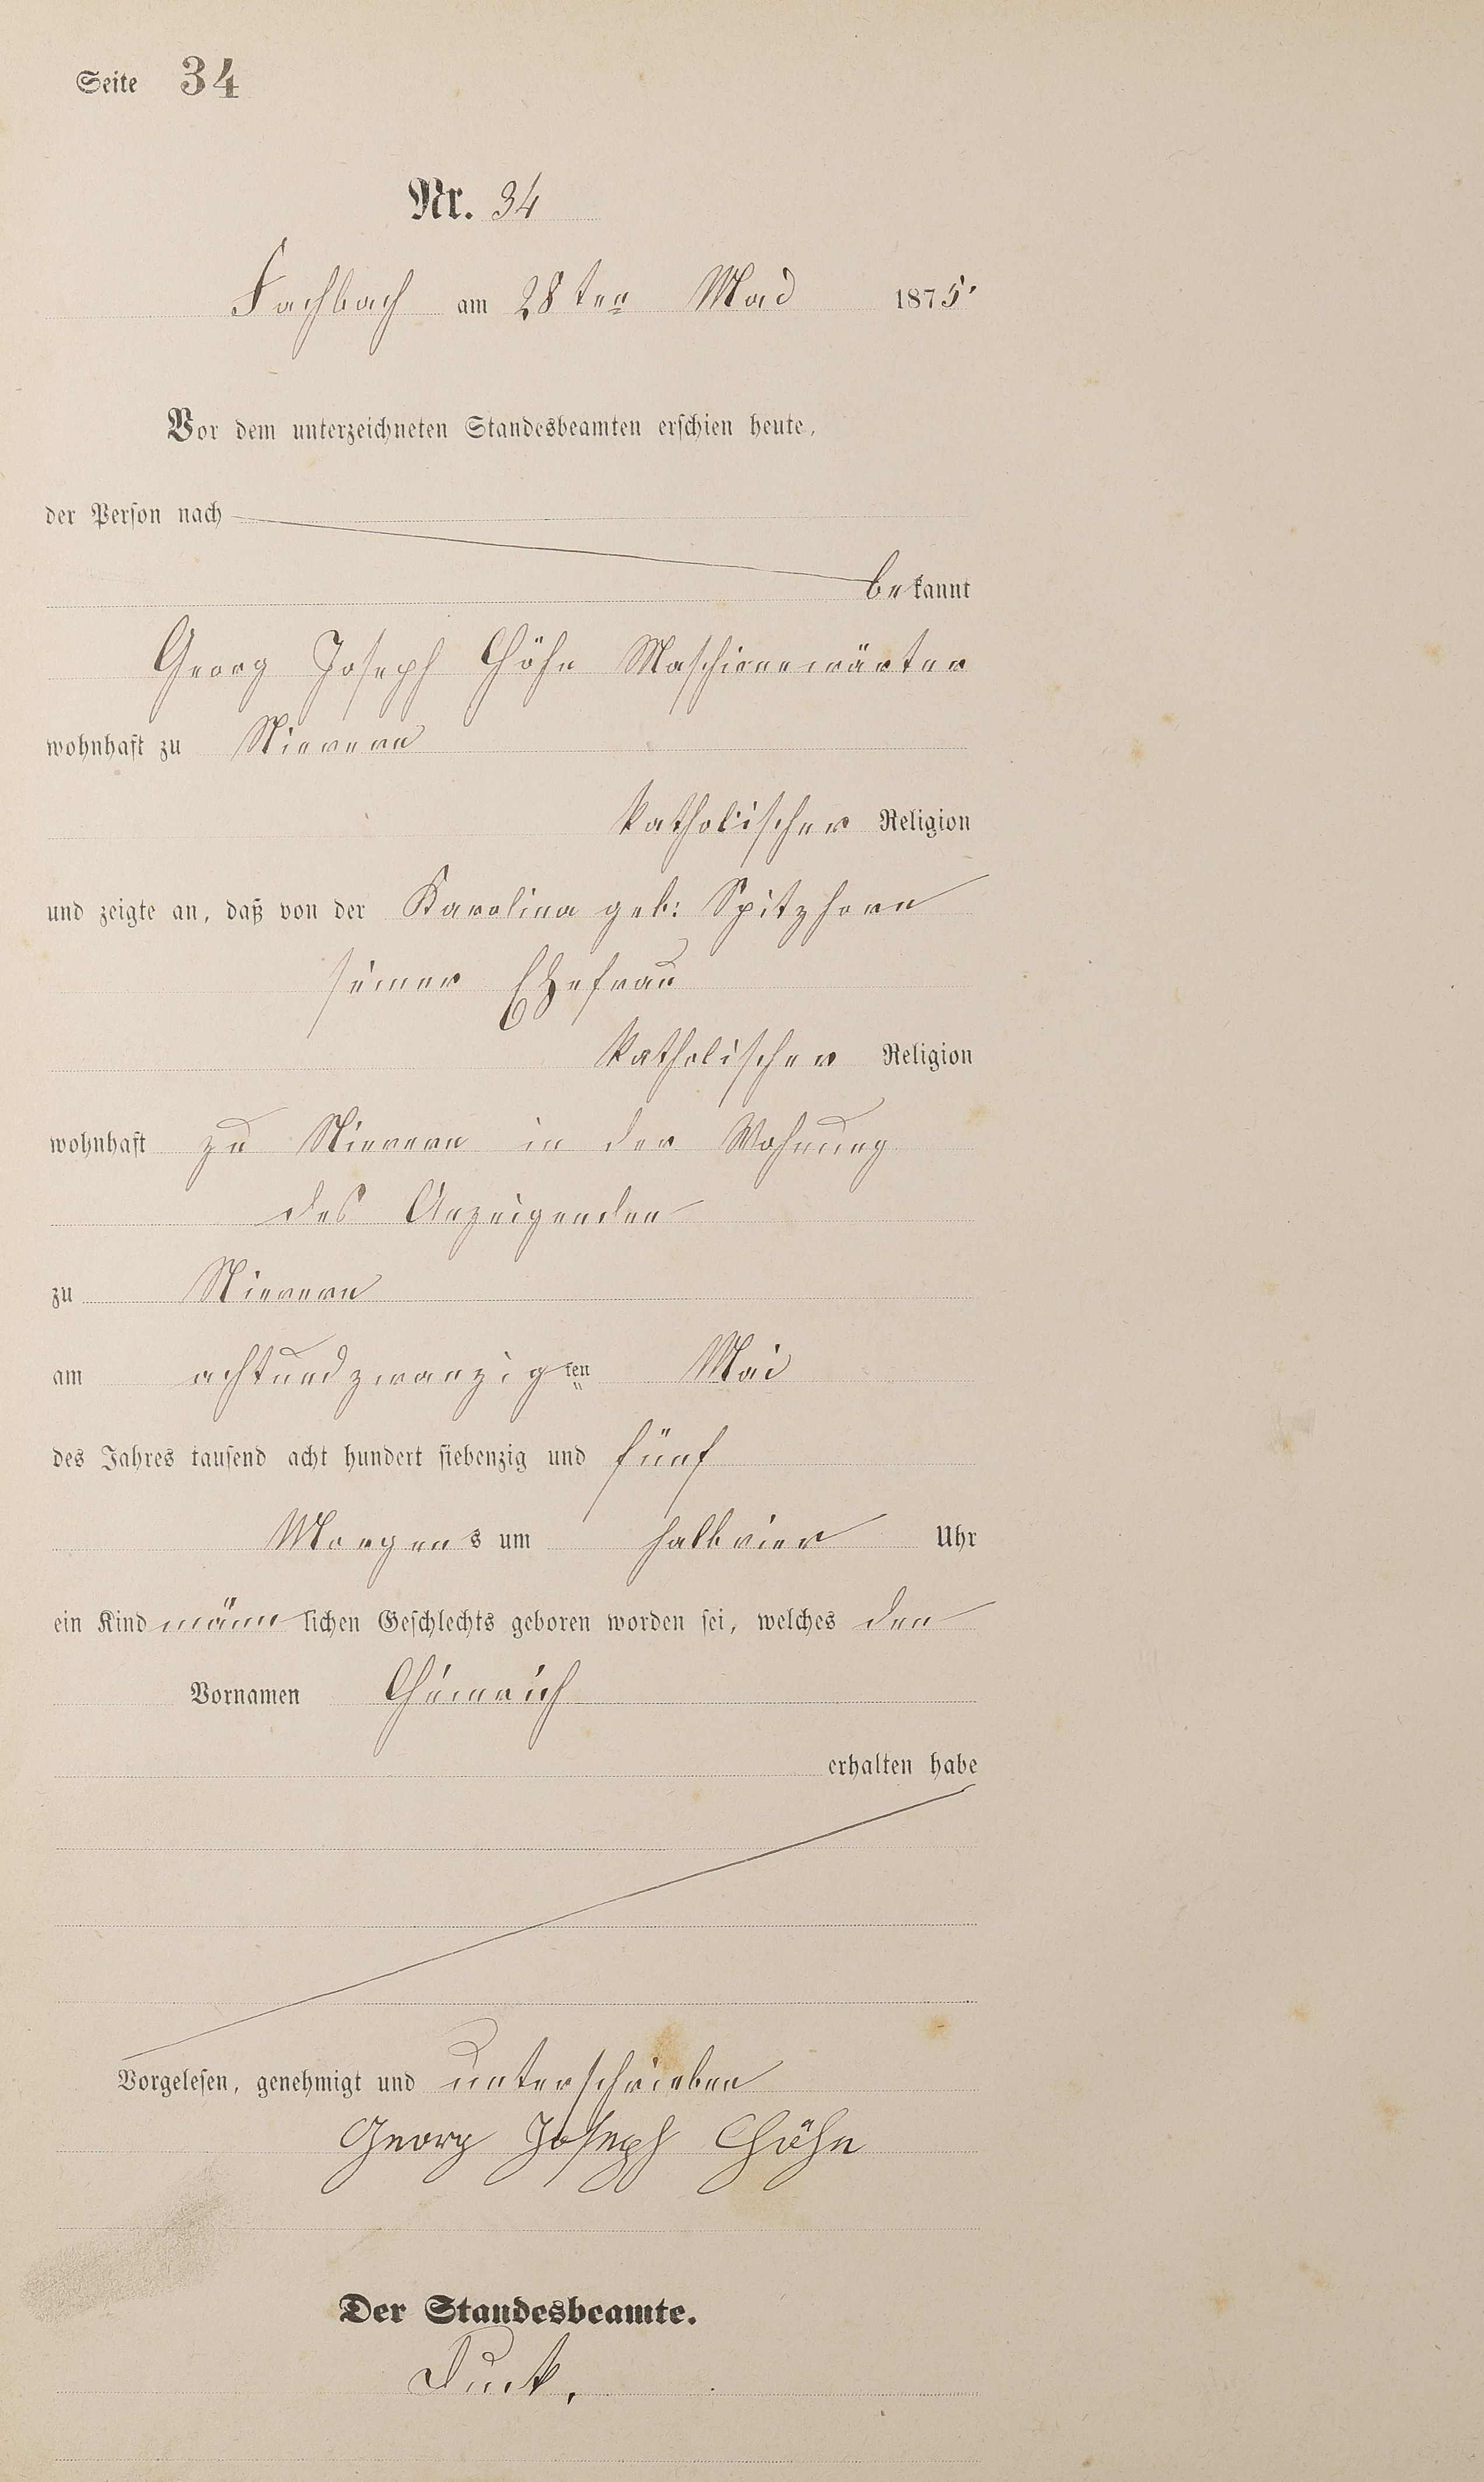 Seite 34
Nr. 34
Fachbach am 28ten Mai 1875
Vor dem unterzeichneten Standesbeamten erschien heute,
der Person nach
bekannt
Georg Joseph Höhn Maschienewärter
wohnhaft zu Nievern
katholischer Religion
und zeigte an, daß von der Karolina geb: Spitzhorn
seiner Ehefrau
katholischer Religion
wohnhaft zu Nievern in der Wohnung
des Anzeigenden
zu Nievern
am achtundzwanzigten Mai
des Jahres tausend acht hundert siebenzig und fünf
Morgens um halbvier Uhr
ein Kind männlichen Geschlechts geboren worden sei, welches den
Vornamen Heinrich
erhalten habe
Vorgelesen, genehmigt und unterschrieben
Georg Joseph Höhn
Der Standesbeamte.
Duck.